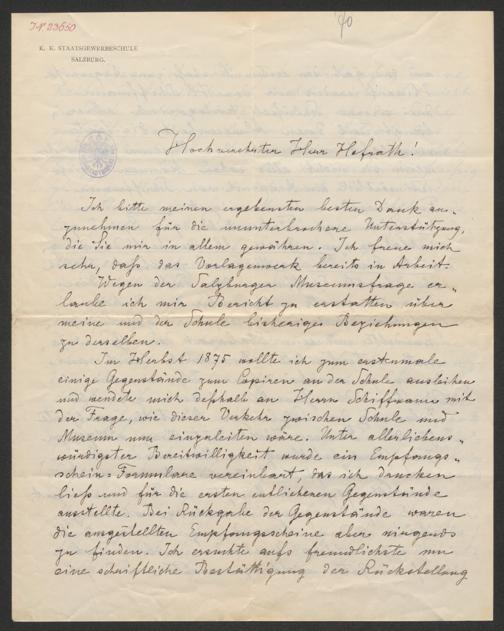 J.N. 23650
70
K. K. STAATSGEWERBESCHULE
SALZBURG.
Hochverehrter Herr Hofrath!
Ich bitte meinen ergebensten besten Dank an-
zunehmen für die ununterbrochene Unterstützung,
die Sie mir in allem gewähren. Ich freue mich
sehr, daß das Vorlagenwerk bereits in Arbeit.
Wegen der Salzburger Museumsfrage er-
laube ich mir Bericht zu erstatten über
meine und der Schule bisherigen Beziehungen
zu derselben.
Im Herbst 1875 wollte ich zum erstenmale
einige Gegenstände zum Copiren an der Schule ausleihen
und wendete mich deßhalb an Herrn Schiffmann mit
der Frage, wie dieser Verkehr zwischen Schule und
Museum nun einzuleiten wäre. Unter allerliebens-
würdigster Bereitwilligkeit wurde ein Empfangs-
schein-Formulare vereinbart, das ich drucken
ließ und für die ersten entliehenen Gegenstände
ausstellte. Bei Rückgabe der Gegenstände waren
die ausgestellten Empfangsscheine aber nirgends
zu finden. Ich ersuchte aufs freundlichste nun
eine schriftliche Bestättigung der Rückstellung